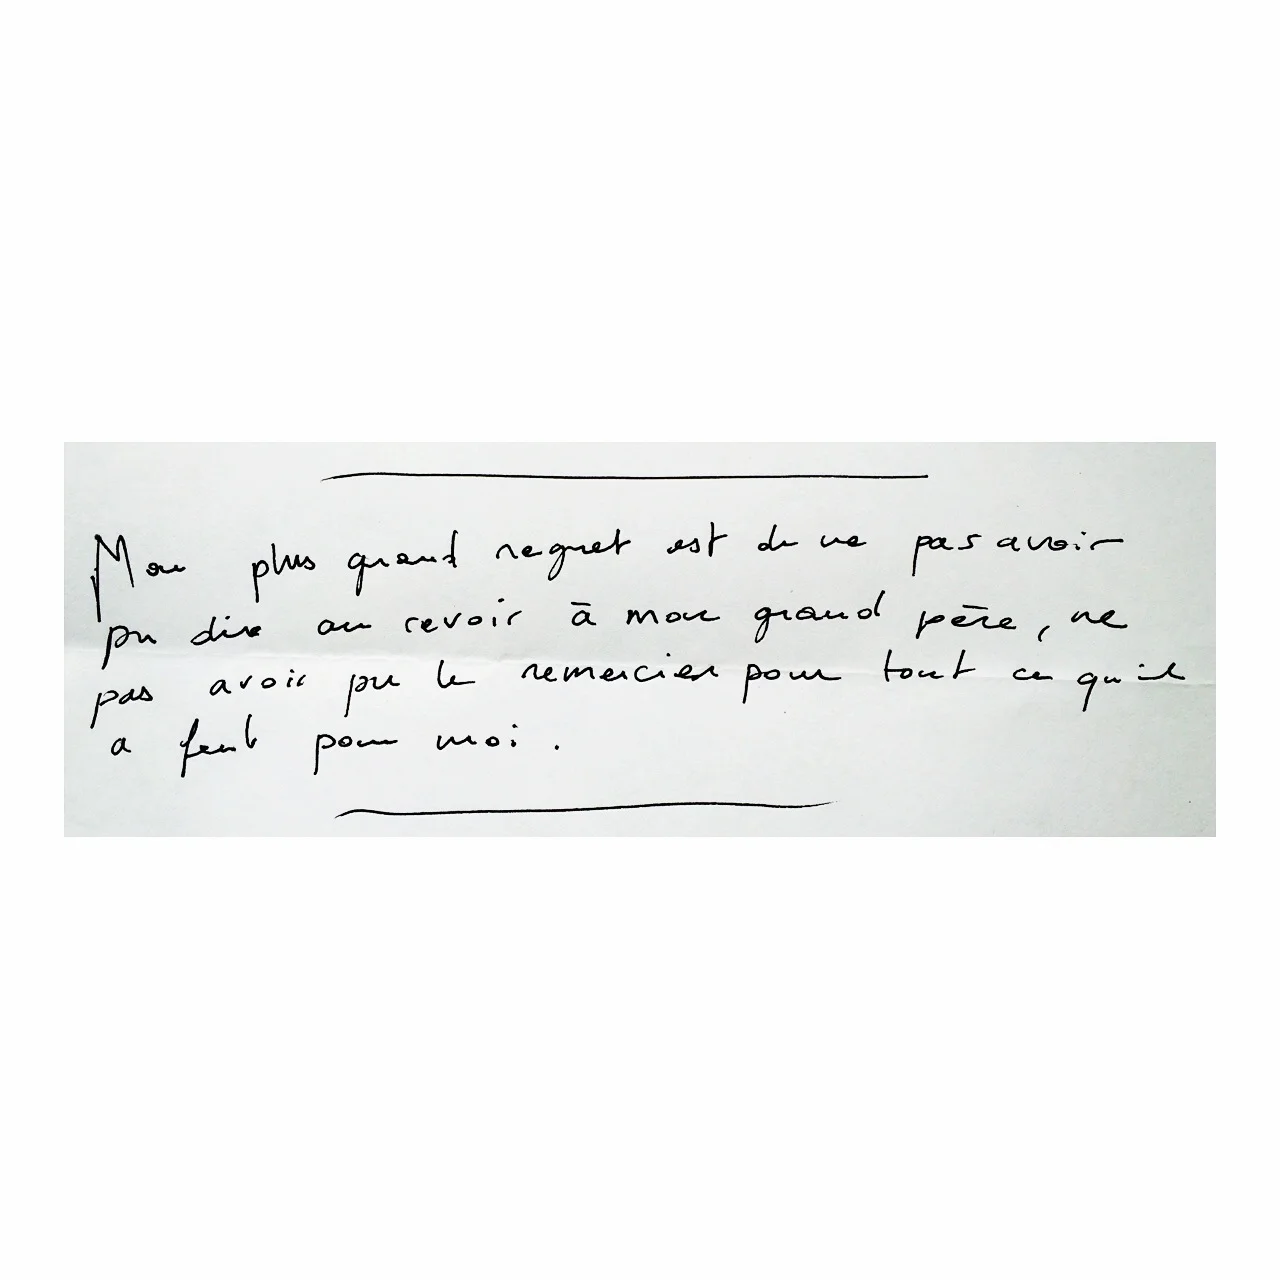 Mon plus grand regret est de ne pas avoir
pu dire au revoir à mon grand père, ne
pas avoir pu le remercier pour tout ce qu'il
a fait pour moi.